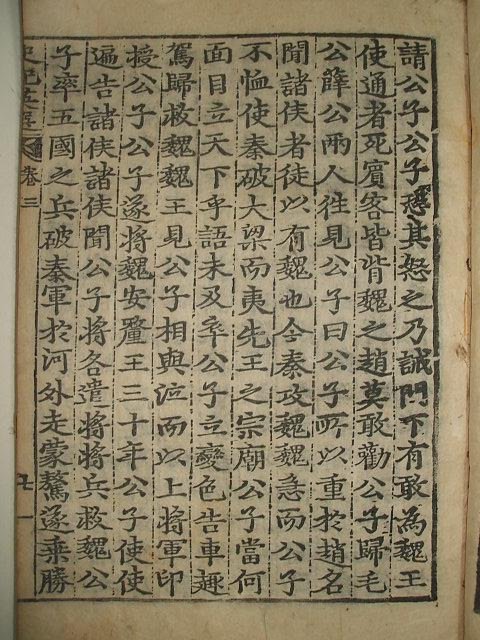 請公子公子恐其怒之乃誡門下有敢為魏王
使通者死賓客皆背魏之趙莫敢勸公子歸毛
公薛公兩人徃見公子曰公子所以重於趙名
聞諸侯者徒以有魏也今秦攻魏魏急而公子
不恤使秦破大梁而夷先王之宗廟公子當何
面目立天下乎語未及卒公子立變色告車趣
駕歸救魏魏王見公子相與泣而以上將軍印
授公子公子遂將魏安釐王三十年公子使使
遍告諸侯諸侯聞公子將各遣將將兵救魏公
子率五國之兵破秦軍於河外走蒙驁遂乘勝
卷三